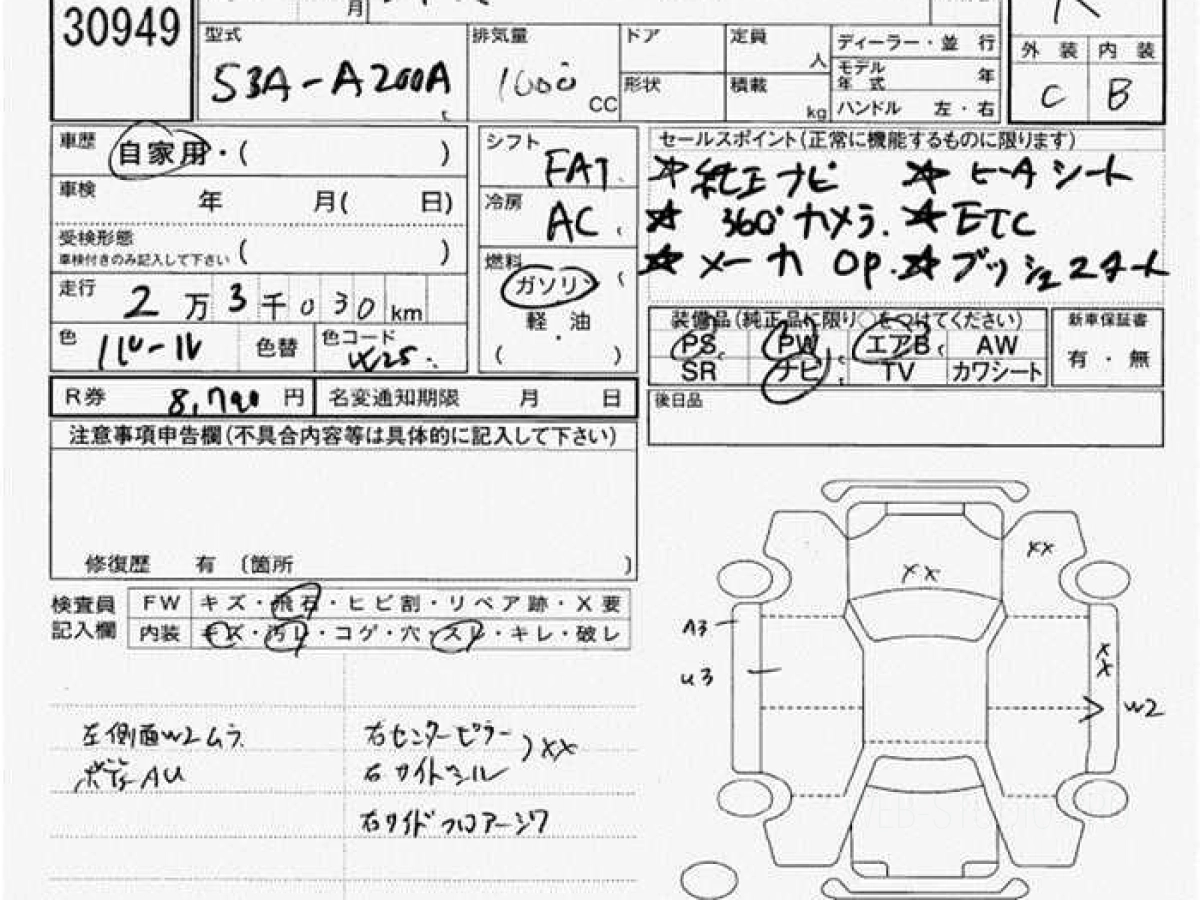 30949
月
型式
53A-A200A
排気量
1000 CC
ドア
定員 人
形状
積載 kg
ディーラー・並 行
モデル年 式 年
ハンドル 左・右
外 装 内 装
C B
車歴 自家用・( )
車検 年 月( 日)
受検形態 ( )
車検付きのみ記入して下さい
走行 2万3千030km
色 パール 色替 色コード W25
シフト FAT
冷房 AC
燃料 ガソリン
軽・油
( )
セールスポイント(正常に機能するものに限ります)
☆純正ナビ ☆ヒーAシート
☆360°カメラ. ☆ETC
☆メーカOP. ☆プッシュスタート
装備品(純正品に限り○をつけてください)
PS PW エアB AW
SR ナビ TV カワシート
新車保証書
有・無
R券 8,790円 名変通知期限 月 日
後日品
注意事項申告欄(不具合内容等は具体的に記入して下さい)
修復歴 有 〔箇所 〕
検査員記入欄
FW キズ・飛石・ヒビ割・リペア跡・X要
内装 キズ・汚レ・コゲ・穴・スレ・キレ・破レ
左側面W2ムラ
ボディAU
右センターピラー
右サイドシル
)XX
右サイドフロアージワ
XX
XX
A3
U3
XX
W2